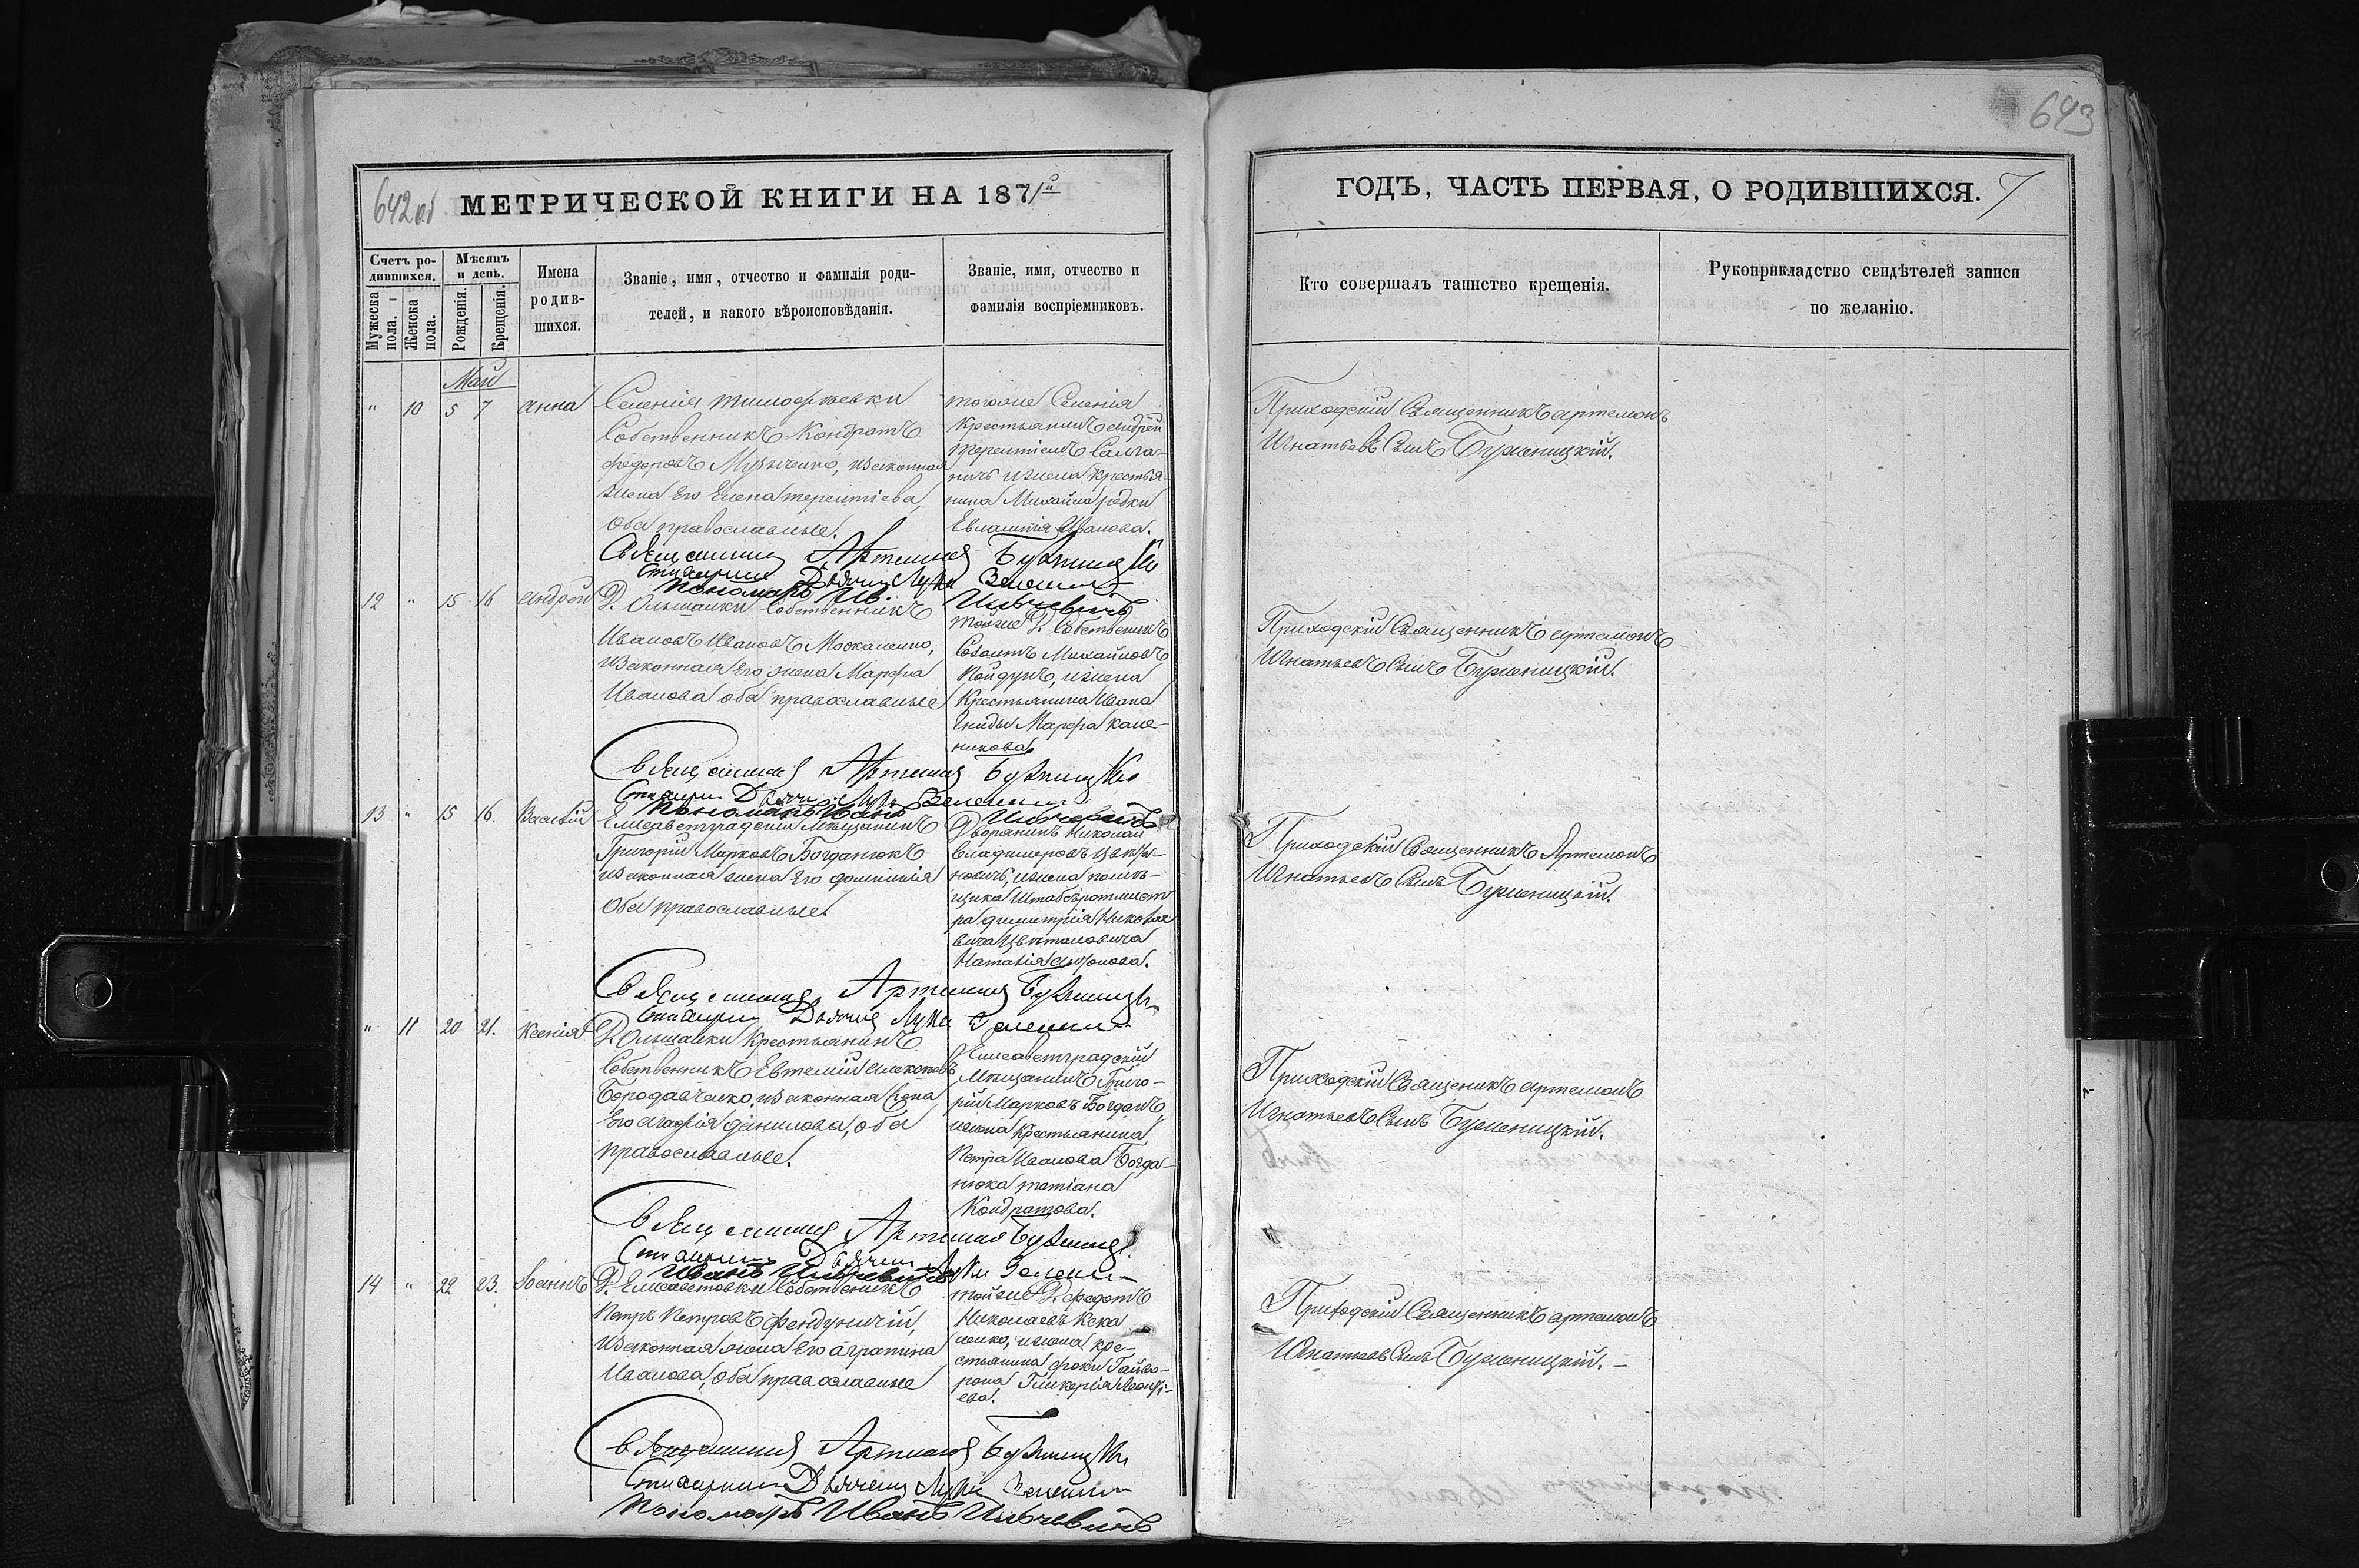 642 об
МЕТРИЧЕСКОЙ КНИГИ НА 1871
Счетъ ро-
дившихся.
Мѣсяцъ
и день.
Мужеска
пола.
Женска
пола.
Рожденія.
Крещенія.
Имена
родив-
шихся.
Званіе, имя, отчество и фамилія роди-
телей, и какого вѣроисповѣданія.
Званіе, имя, отчество и
фамилія воспріемниковъ.
Май
" 10 5 7 Анна
Селенія Тимофѣевки
Собственникъ Кондратъ
Федоровъ изаконная
жена Его Елена Терентіева,
Оба православные.
тогоже Селенія
Крестьянинъ Андрей
Терентіевъ
ижена Крестья-
нина Михайла Редки
Евлампія Иванова.
Священникъ Артемонъ
Стихарный Дьячекъ Лука
Пономарь Ив. Ильчевичъ
12 " 15 16 Андрей
Д. Ольшанки Собственникъ
Ивановъ Ивановъ Москаленко,
изаконная Его жена Марфа
Иванова оба православные
тойже Д. Собственникъ
Созонтъ Михайловъ
Койдунъ, ижена
Крестьянина Ивана
Гниды Марфа
никова
Священникъ Артемонъ
Стихарный Дьячекъ Лука
Пономарь Иванъ Ильчевичъ
13 " 15 16. Василій
Елисаветградскій Мѣщанинъ
Григорій Марковъ Богданюкъ
изаконная жена Его Домникія
Оба православные.
Дворянинъ Николай
Владимеровъ
новичъ, ижена помѣ-
щика Штабсъротмист
ра Димитрія Никола
вича
Наталія Антонова.
Священникъ Артемонъ
Стихарный Дьячекъ Лука
" 11 20 21. Ксенія
Д. Ольшанки Крестьянинъ
Собственникъ Евтемій
Бородавченко, изаконная жена
Его Агафія Данилова, оба
православные.
Елисаветградскій
Мѣщанинъ Григо-
рій Марковъ Богданъ,
ижена Крестьянина
Петра Иванова Богда-
нюка Татіана
Кондратова.
Священникъ Артемонъ
Стихарный Дьячекъ
Иванъ Ильчевичъ
14 " 22 23. Іоаннъ
Д. Елисаветовки Собственникъ
Петръ Петровъ
изаконная жена Его Агрипина
Иванова, оба православные
тойже Д. Федотъ
Николаевъ
ижена кре-
стьянина Фоки Гайво-
рона Гликерія
ева.
Священникъ Артемонъ
Стихарный Дьячекъ Лука
Пономарь Иванъ Ильчевичъ
643
ГОДЪ, ЧАСТЬ ПЕРВАЯ, О РОДИВШИХСЯ. 7
Кто совершалъ таинство крещенія.
Рукоприкладство свидѣтелей записи
по желанію.
Приходскій Священникъ Артемонъ
Игнатьевъ Сынъ Бурженицкій.
Приходскій Священникъ Артемонъ
Игнатьевъ Сынъ Бурженицкій.
Приходскій Священникъ Артемонъ
Игнатьевъ Сынъ Бурженицкій.
Приходскій Священикъ Артемонъ
Игнатьевъ Сынъ Бурженицкій.
Приходскій Священникъ Артемонъ
Игнатьевъ Сынъ Бурженицкій. –